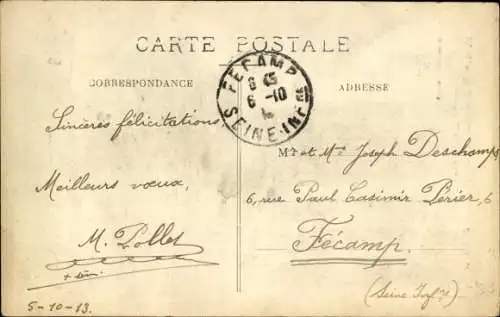 CARTE POSTALE
CORRESPONDANCE
ADRESSE
FECAMP
6 45
6 -10
SEINE-INFRE
Sincères félicitations,
Meilleurs vœux,
M. Pollet
5-10-13.
Mr et Mme Joseph Deschamps
6, rue Paul Casimir Périer, 6
Fécamp.
(Seine Infre)